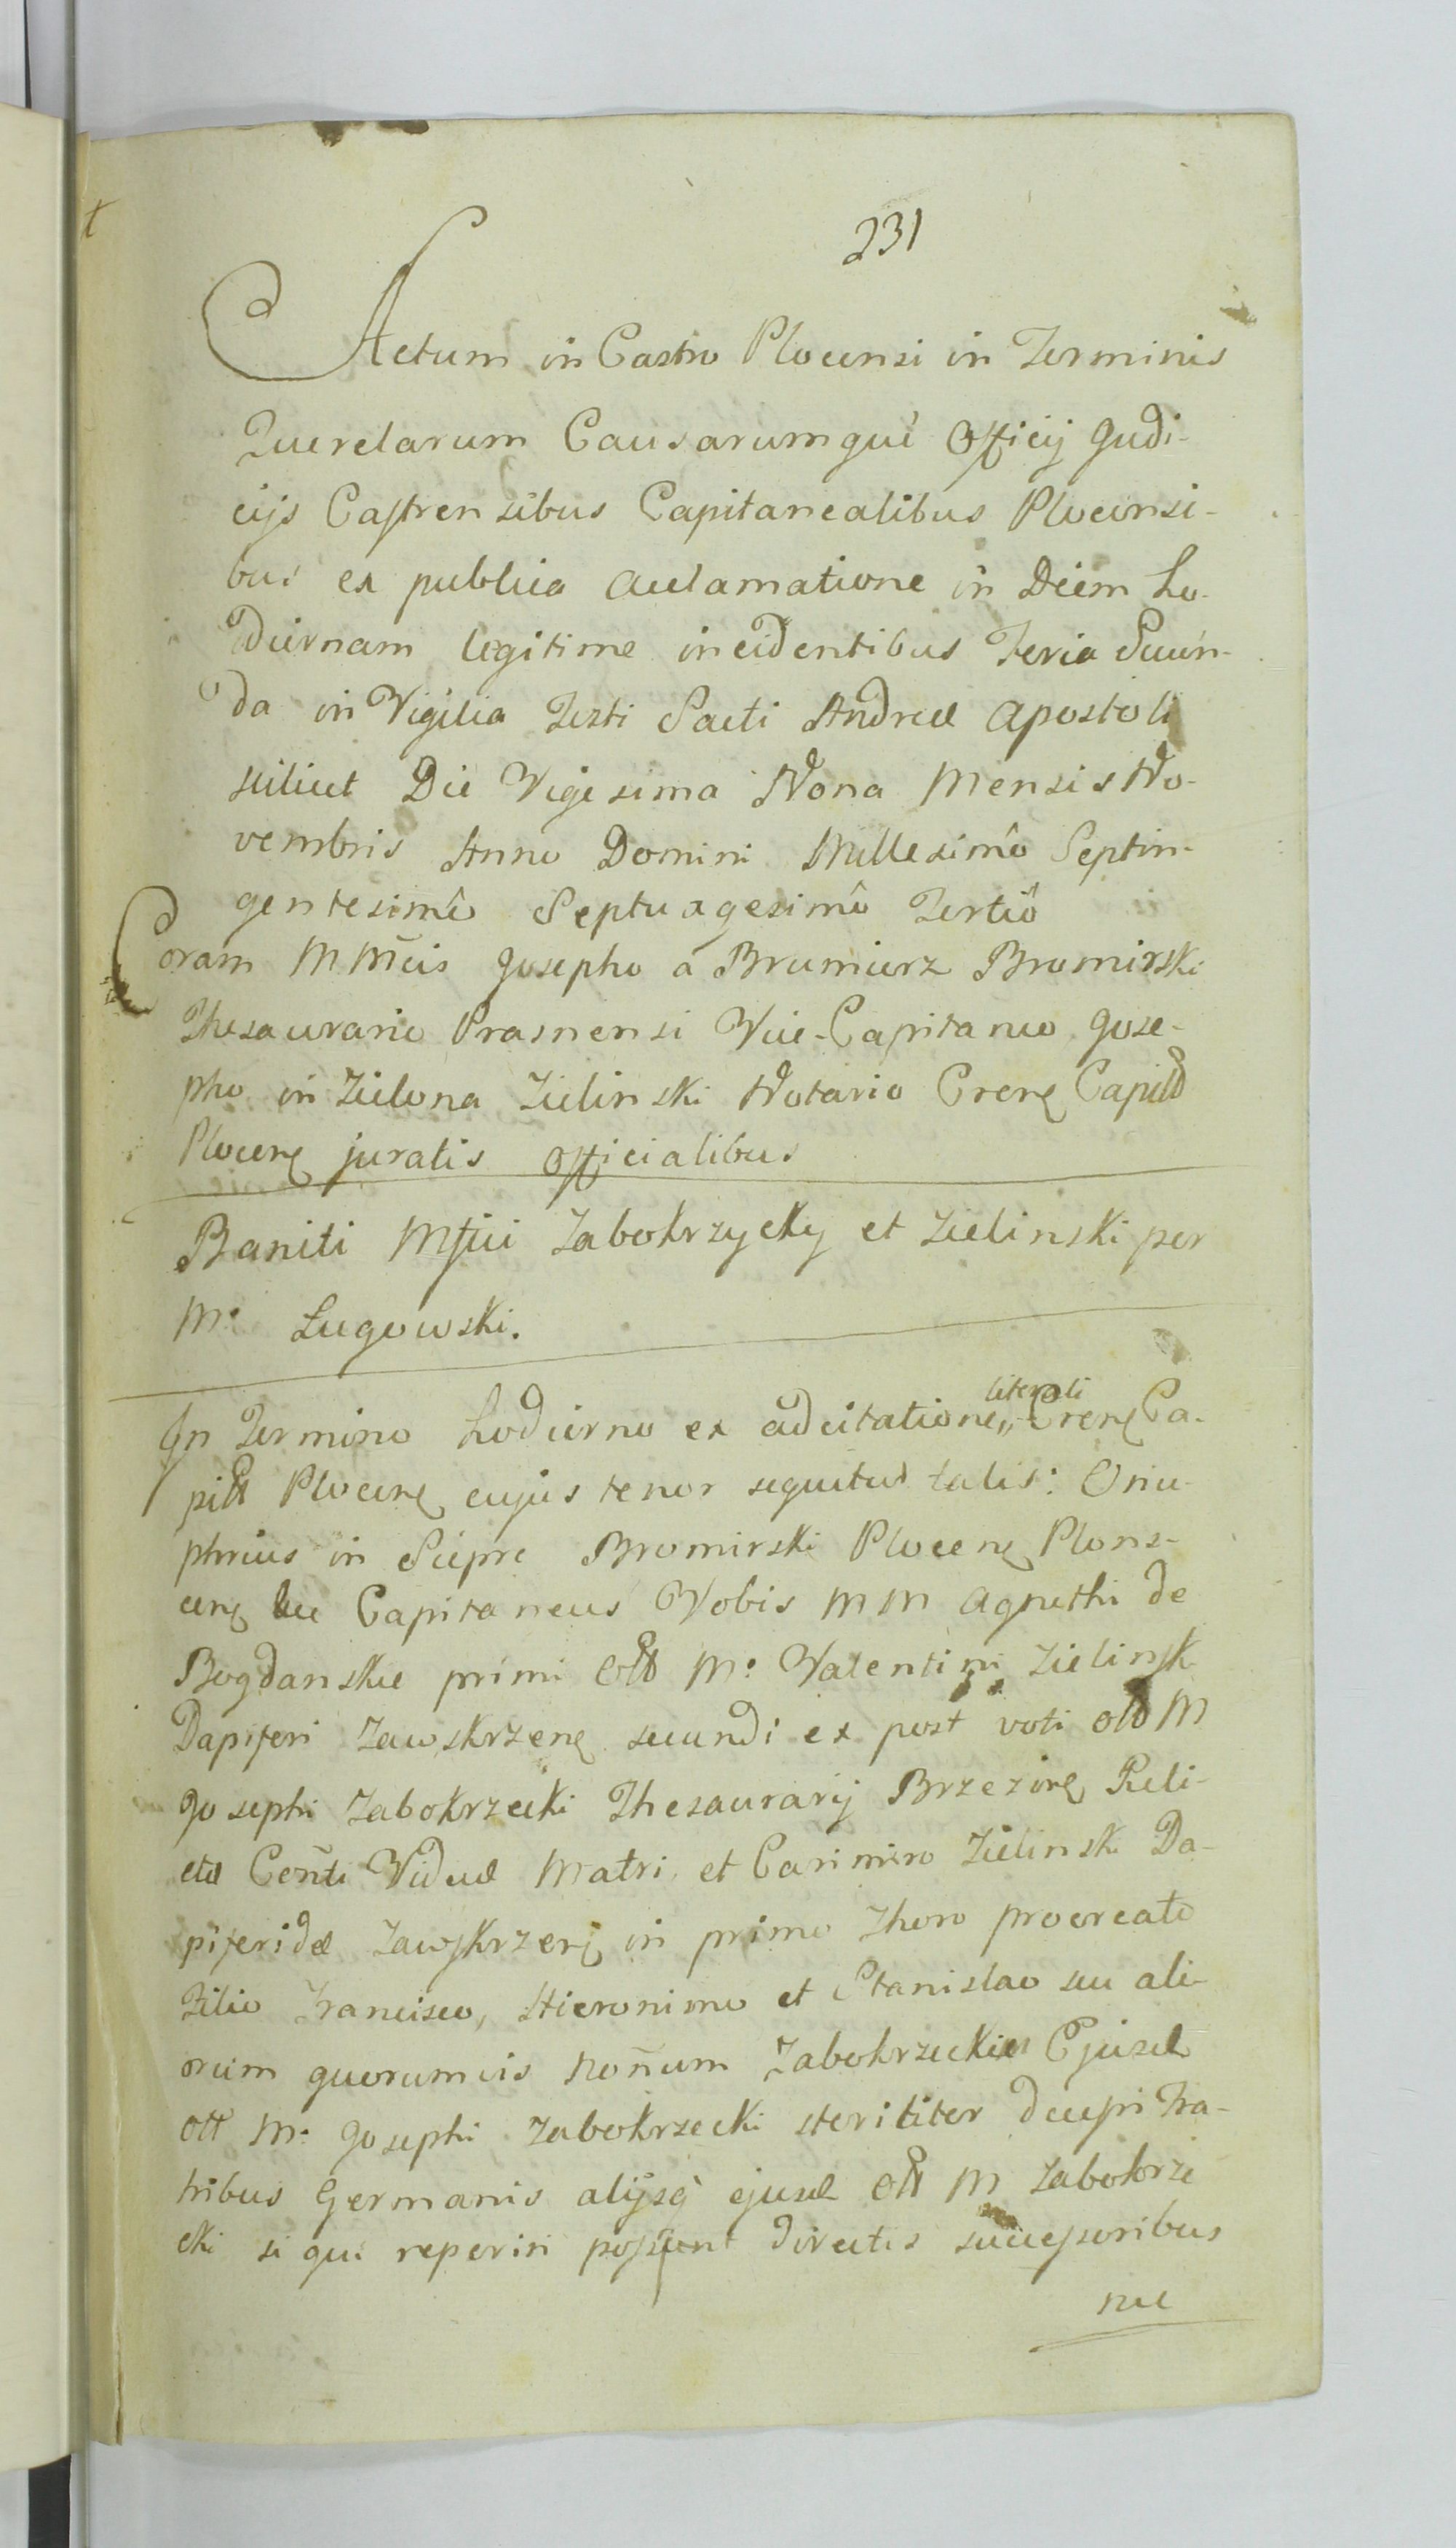 231
Actum in Castro Plocensi in Terminis
Querelarum Causarumquè Officij Judi-
cijs Castrensibus Capitanealibus Plocensi-
bus ex publica acclamatione in Diem ho-
diernam legitime incidentibus Feria Secun-
da in Vigilia Festi Scti Andreæ Apostoli
scilicet Die Vigesima Nona Mensis No-
vembris Anno Domini Millesimô Septin-
gentesimô Septuagesimô Tertiô
Coram MMcis Josepho à Bromierz Bromirski
Thesaurario Prasnensi Vice-Capitaneo Jose-
pho in Zielona Zielinski Notario Cren Capitt
Plocen juratis Officialibus
Baniti Mfici Zabokrzycky et Zielinski per
M. Lugowski.
In Termino hodierno ex adcitatione literali Cren Ca-
pitt Plocen cujus tenor sequitur talis: Onu-
phrius in Siepre Bromirski Plocen Plons-
cen Capitaneus Vobis MM Agnethi de
Bogdanskie primi Ott M. Valentini Zielinsk
Dapiferi Zawskrzen secundi ex post voti ott M
Josephi Zabokrzecki Thesaurarij Brzezin Reli-
ctæ Consti Viduæ Matri et Casimiro Zielinski Da-
piferidæ Zawskrzen in primo Thoro procreato
Filio Francisco, Hieronimo et Stanislao seu ali-
orum quorumvis noñum Zabokrzeckim Ejusd
Ott M. Josephi Zabokrzecki steriliter decessi Fra-
tribus Germanis alijsq ejusd Ott M Zabokrze
cki si qui reperiri possunt directis successoribus
nec